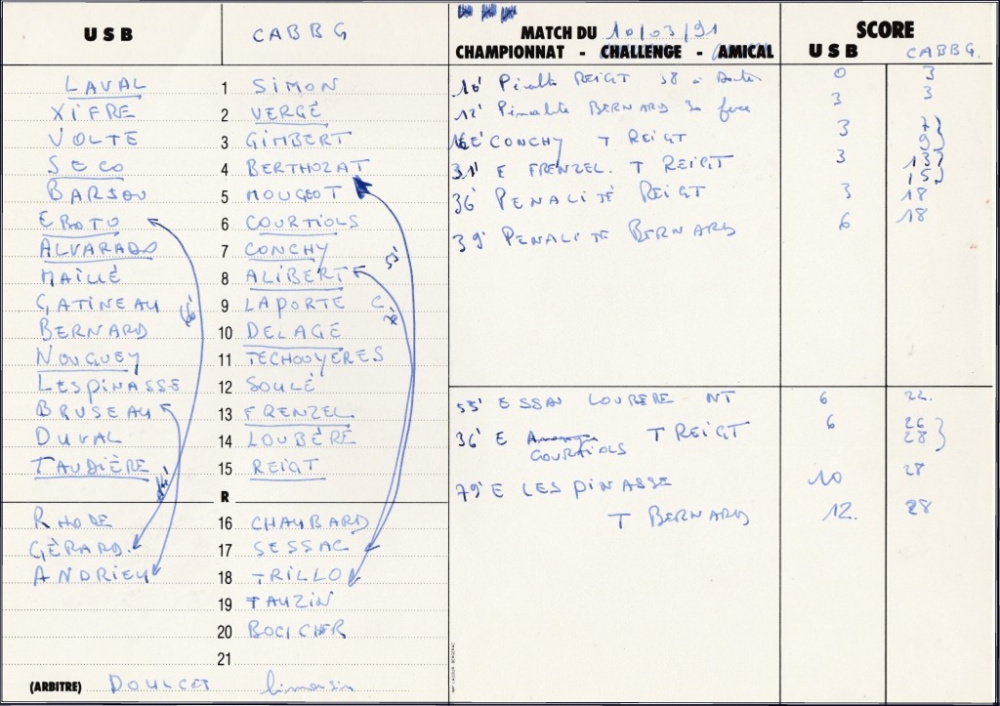 USB CABBG
LAVAL 1 SIMON
XIFRE 2 VERGÉ
VOLTE 3 GIMBERT
SECO 4 BERTHOZAT
BARSOU 5 MOUGEOT
EBOTO 6 COURTIOLS
ALVARADO 7 CONCHY
MAILLÉ 8 ALIBERT
GATINEAU 9 LAPORTE C
BERNARD 10 DELAGE
NOUGUEY 11 TECHOUYERES
LESPINASSE 12 SOULÉ
BRUSEAU 13 FRENZEL
DUVAL 14 LOUBÉRÉ
TAUDIÈRE 15 REIGT
R
RHODE 16 CHAUBARD
GÉRARD 17 SESSAC
ANDRIEU 18 TRILLO
19 TAUZIN
20 BOCICHER
21
(ARBITRE) DOULCET limousin
MATCH DU 10/03/91
CHAMPIONNAT - CHALLENGE - AMICAL
SCORE
USB CABBG.
10' Pénalité REIGT 38 m 0 3
12' Pénalité BERNARD 30 face 3 3
16' E CONCHY T REIGT 3 7 9
31' E FRENZEL. T REIGT 3 13 15
36' PENALITÉ REIGT 3 18
39' PENALITE BERNARD 6 18
55' ESSAI LOUBERE NT 6 22.
36' E COURTIOLS T REIGT 6 26 28
79' E LESPINASSE 10 28
T BERNARD 12. 28